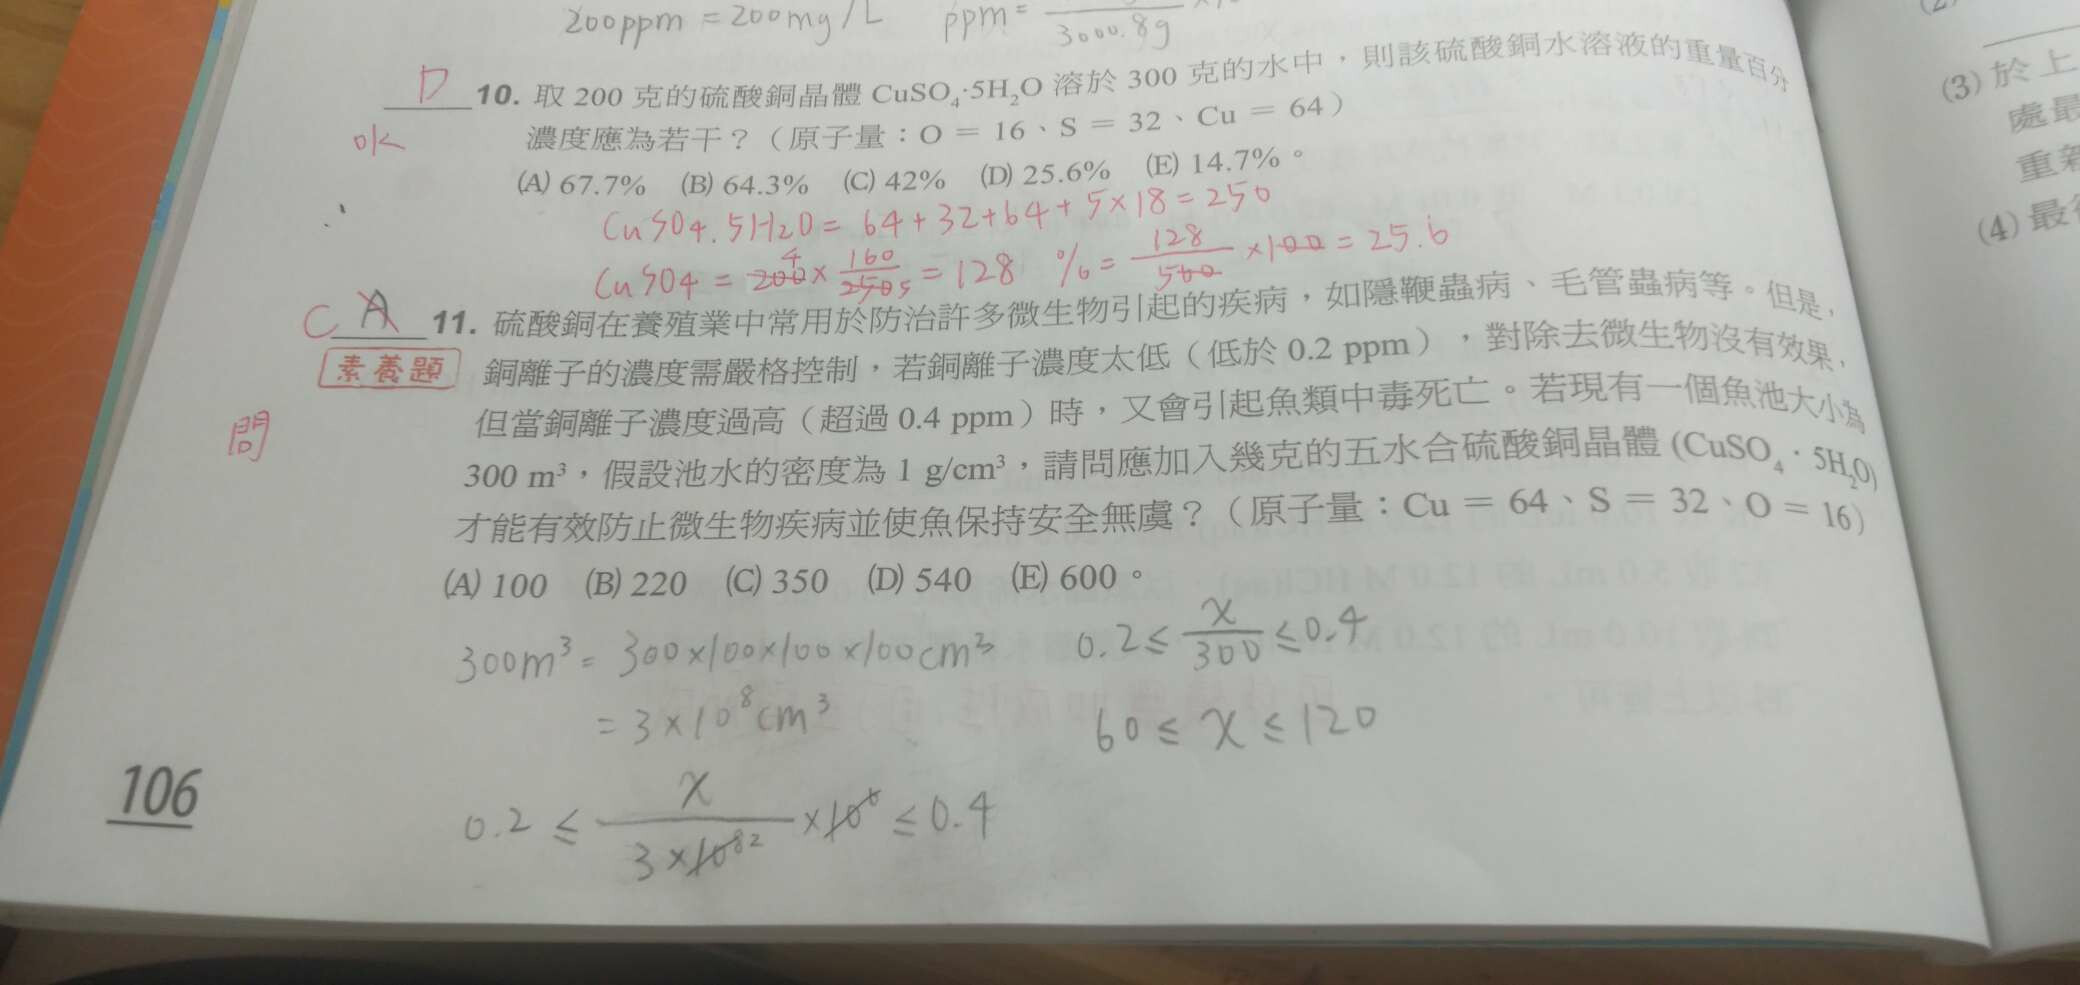 200ppm = 200mg/L ppm = 3000.8g
D 10. 取 200 克的硫酸銅晶體 CuSO₄·5H₂O 溶於 300 克的水中,則該硫酸銅水溶液的重量百分
ok 濃度應為若干?(原子量:O = 16、S = 32、Cu = 64)
(A) 67.7% (B) 64.3% (C) 42% (D) 25.6% (E) 14.7%。
CuSO4.5H2O = 64+32+64+5×18=250
CuSO4 = 200 4 × 160/250 5 = 128 % = 128/500 ×100 = 25.6
C A 11. 硫酸銅在養殖業中常用於防治許多微生物引起的疾病,如隱鞭蟲病、毛管蟲病等。但是,
素養題 銅離子的濃度需嚴格控制,若銅離子濃度太低(低於 0.2 ppm),對除去微生物沒有效果,
問 但當銅離子濃度過高(超過 0.4 ppm)時,又會引起魚類中毒死亡。若現有一個魚池大小為
300 m³,假設池水的密度為 1 g/cm³,請問應加入幾克的五水合硫酸銅晶體 (CuSO₄·5H₂O)
才能有效防止微生物疾病並使魚保持安全無虞?(原子量:Cu = 64、S = 32、O = 16)
(A) 100 (B) 220 (C) 350 (D) 540 (E) 600。
300m³ = 300×100×100×100cm³ 0.2 ≤ x/300 ≤ 0.4
= 3×10⁸cm³ 60 ≤ x ≤ 120
0.2 ≤ x/3×10⁸ 2 ×10⁶ ≤ 0.4
106
(3) 於上
處最
重新
(4) 最